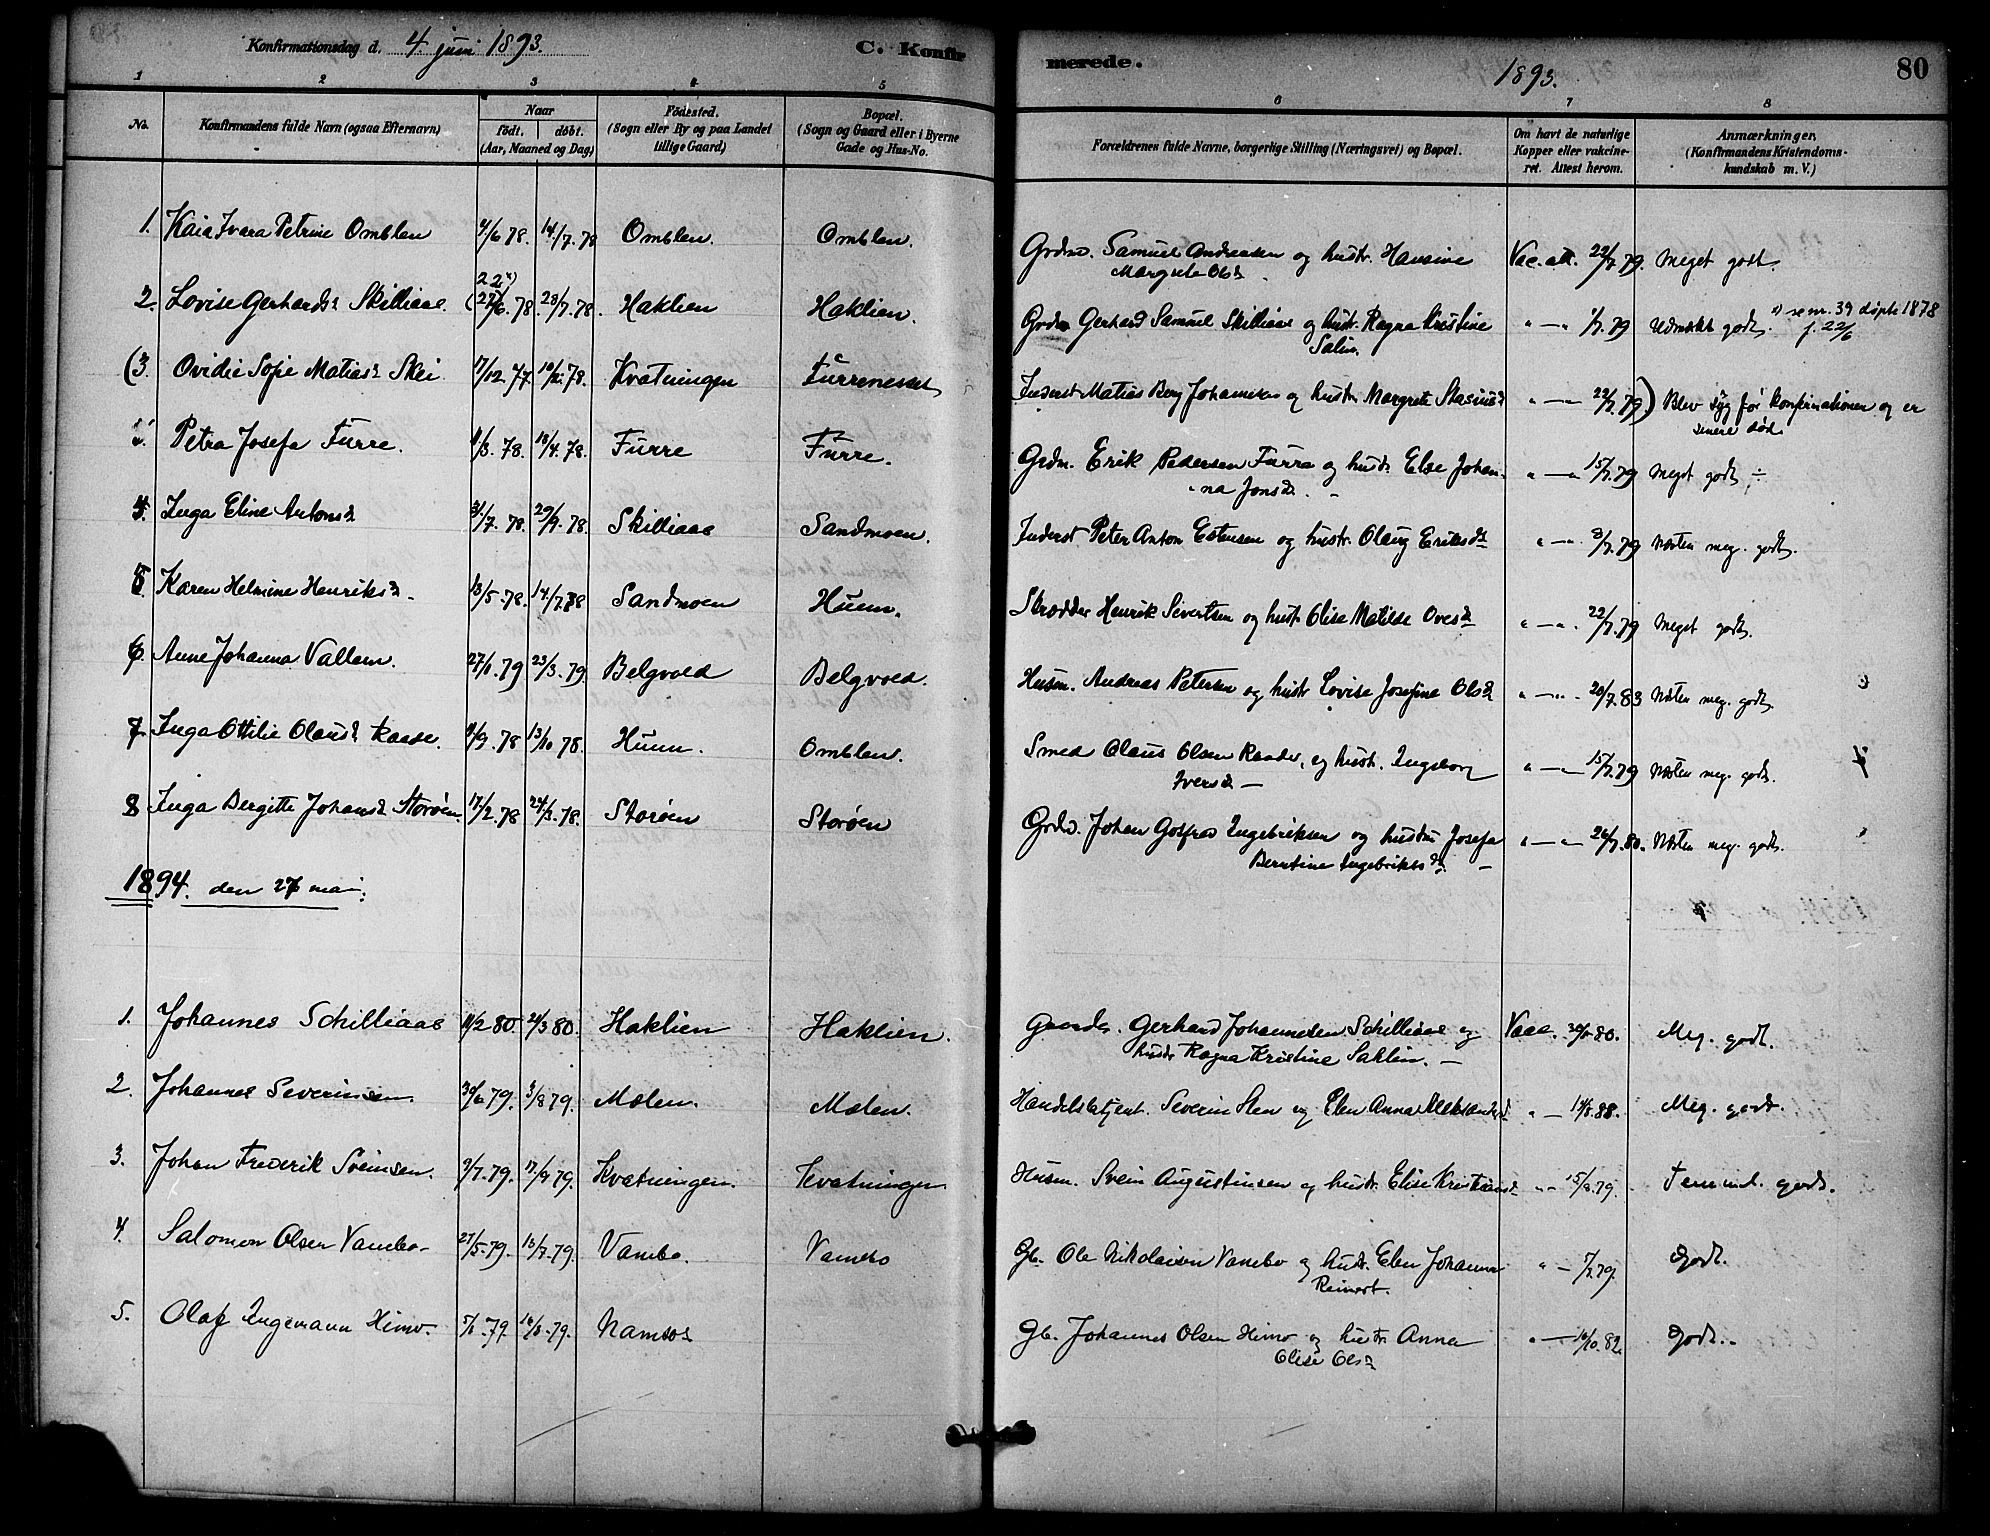 Konfirmationsdag d. 4 juni 1893. C. Konfirmerede. 1893. 80
1 2 3 4 5 6 7 8
No. Konfirmandens fulde Navn (ogsaa Efternavn) Naar födt. döbt. (Aar, Maaned og Dag) Födested. (Sogn eller By og paa Landet tillige Gaard) Bopæl. (Sogn og Gaard eller i Byerne Gade og Hus-No. Forældrenes fulde Navne, borgerlige Stilling (Næringsvei) og Bopæl. Om havt de naturlige Kopper eller vakcineret. Attest herom. Anmærkninger. (Konfirmandens Kristendomskundskab m. V.)
1. Kaia Ivara Petrine Omblen 4/6 78. 14/7. 78 Omblen. Omblen. Grdm. Samuel Andreasen og hustr. Hansine Vac. att. 22/7. 79. Meget godt.
Margrete Olsd.
22 x)
2. Lovise Gerhardsd Skilliaas. 78. 28/7. 78. Haklien Haklien. Grdm Gerhard Samuel Skilliaas og hustr. Ragna Kristine " — " 1/7. 79 Udmærket godt. x) se nr. 39 døpte 1878
Salin. f. 22/6
(3. Ovidie Sofie Matiasd Skei 17/12 77. 78. Kvatningen Furrenesset Inderst Matias Berg Johannesen og hustr Margrete Stasiusd " — " 22/7. 79) Blev syg før konfirmationen og er
senere død.
3. Petra Josefa Furre. 78. 78. Furre Furre. Grdm. Erik Pedersen Furre og hustr. Else Johan- " — " 15/7. 79 Meget godt
na Jonsd.
4. Inga Eline Antonsd 31/7. 78. 29/9. 78. Skilliaas Sandmoen. Inderst Peter Anton Estensen og hustr. Olaug Eriksd " — " 3/7. 79 Næsten meg. godt.
5. Karen Helmine Henriksd. 13/5. 78. 14/7. 78 Sandmoen Hunn. Skrædder Henrik Sivertsen og hustr Olise Matilde Ovesd " — " 22/7. 79 Meget godt.
6. Anne Johanna Vallem. 27/1. 79 23/3. 79. Belgvold Belgvold. Husm. Andreas Petersen og hustr Lovise Josefine Olsd " — " 20/7. 83 Næsten meg. godt.
7. Inga Ottilie Olausd Raase. 78 13/10 78. Hunn. Omblen. Smed Olaus Olsen og hustr. Ingeborg " — " 15/7. 79 Næsten meg. godt.
Iversd —
8 Inga Bergitte Johansd Storøen. 17/2. 78 24/3. 78. Storøen Storøen Grdm. Johan Gotfred Ingebriksen og hustru Josefa " — " 26/7. 80. Næsten meg. godt.
Berntine Ingebriktsd. —
1894. den 27 mai.
1. Johannes Schilliaas 11/2 80. 21/3 80. Haklien Haklien. Gaardm. Gerhard Johannesen Schilliaas og Vacc. 80. Meg. godt.
hustr Ragna Kristine Sahlin. —
2. Johannes Severinsen. 30/6 79. 3/8 79. Mælen. Mælen. Handelsbetjent. Severin Sten og Elen Anna Aleksandersd " — 88. Meg. godt.
3. Johan Frederik Sveinsen. 9/7. 79. 79. Kvatningen. Kvatningen. Husm. Svein Augustinsen og hustr. Elise Kristiansd " — 15/9. 79. Temmel. godt.
4. Salomon Olsen Vanebo. 27/5. 79. 13/7. 79. Vanebo. Vanebo Gb. Ole Nikolaisen Vanebo og hustr. Elen Johanna " — 79. Godt.
Reinert.
5. Olaf Ingemann Himo. 79. 79. Namsos Gb. Johannes Olsen Himo og hustr. Anna " — 16/10. 82. Godt.
Olise Olsd